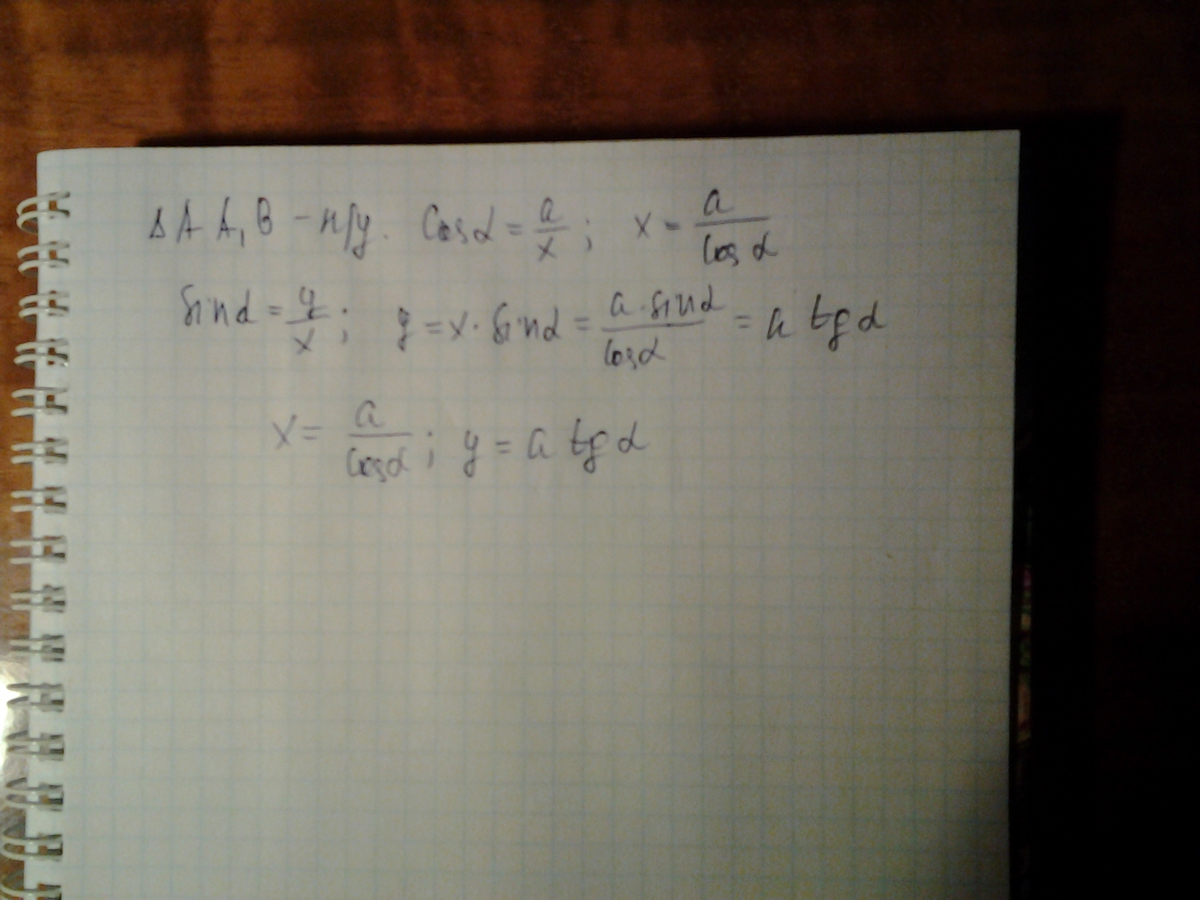 Δ A A₁ B - п/у. Cos α = a/x ; x = a/cos α
Sin α = y/x ; y = x · Sin α = a · sin α/cos α = a tg α
x = a/cos α ; y = a tg α